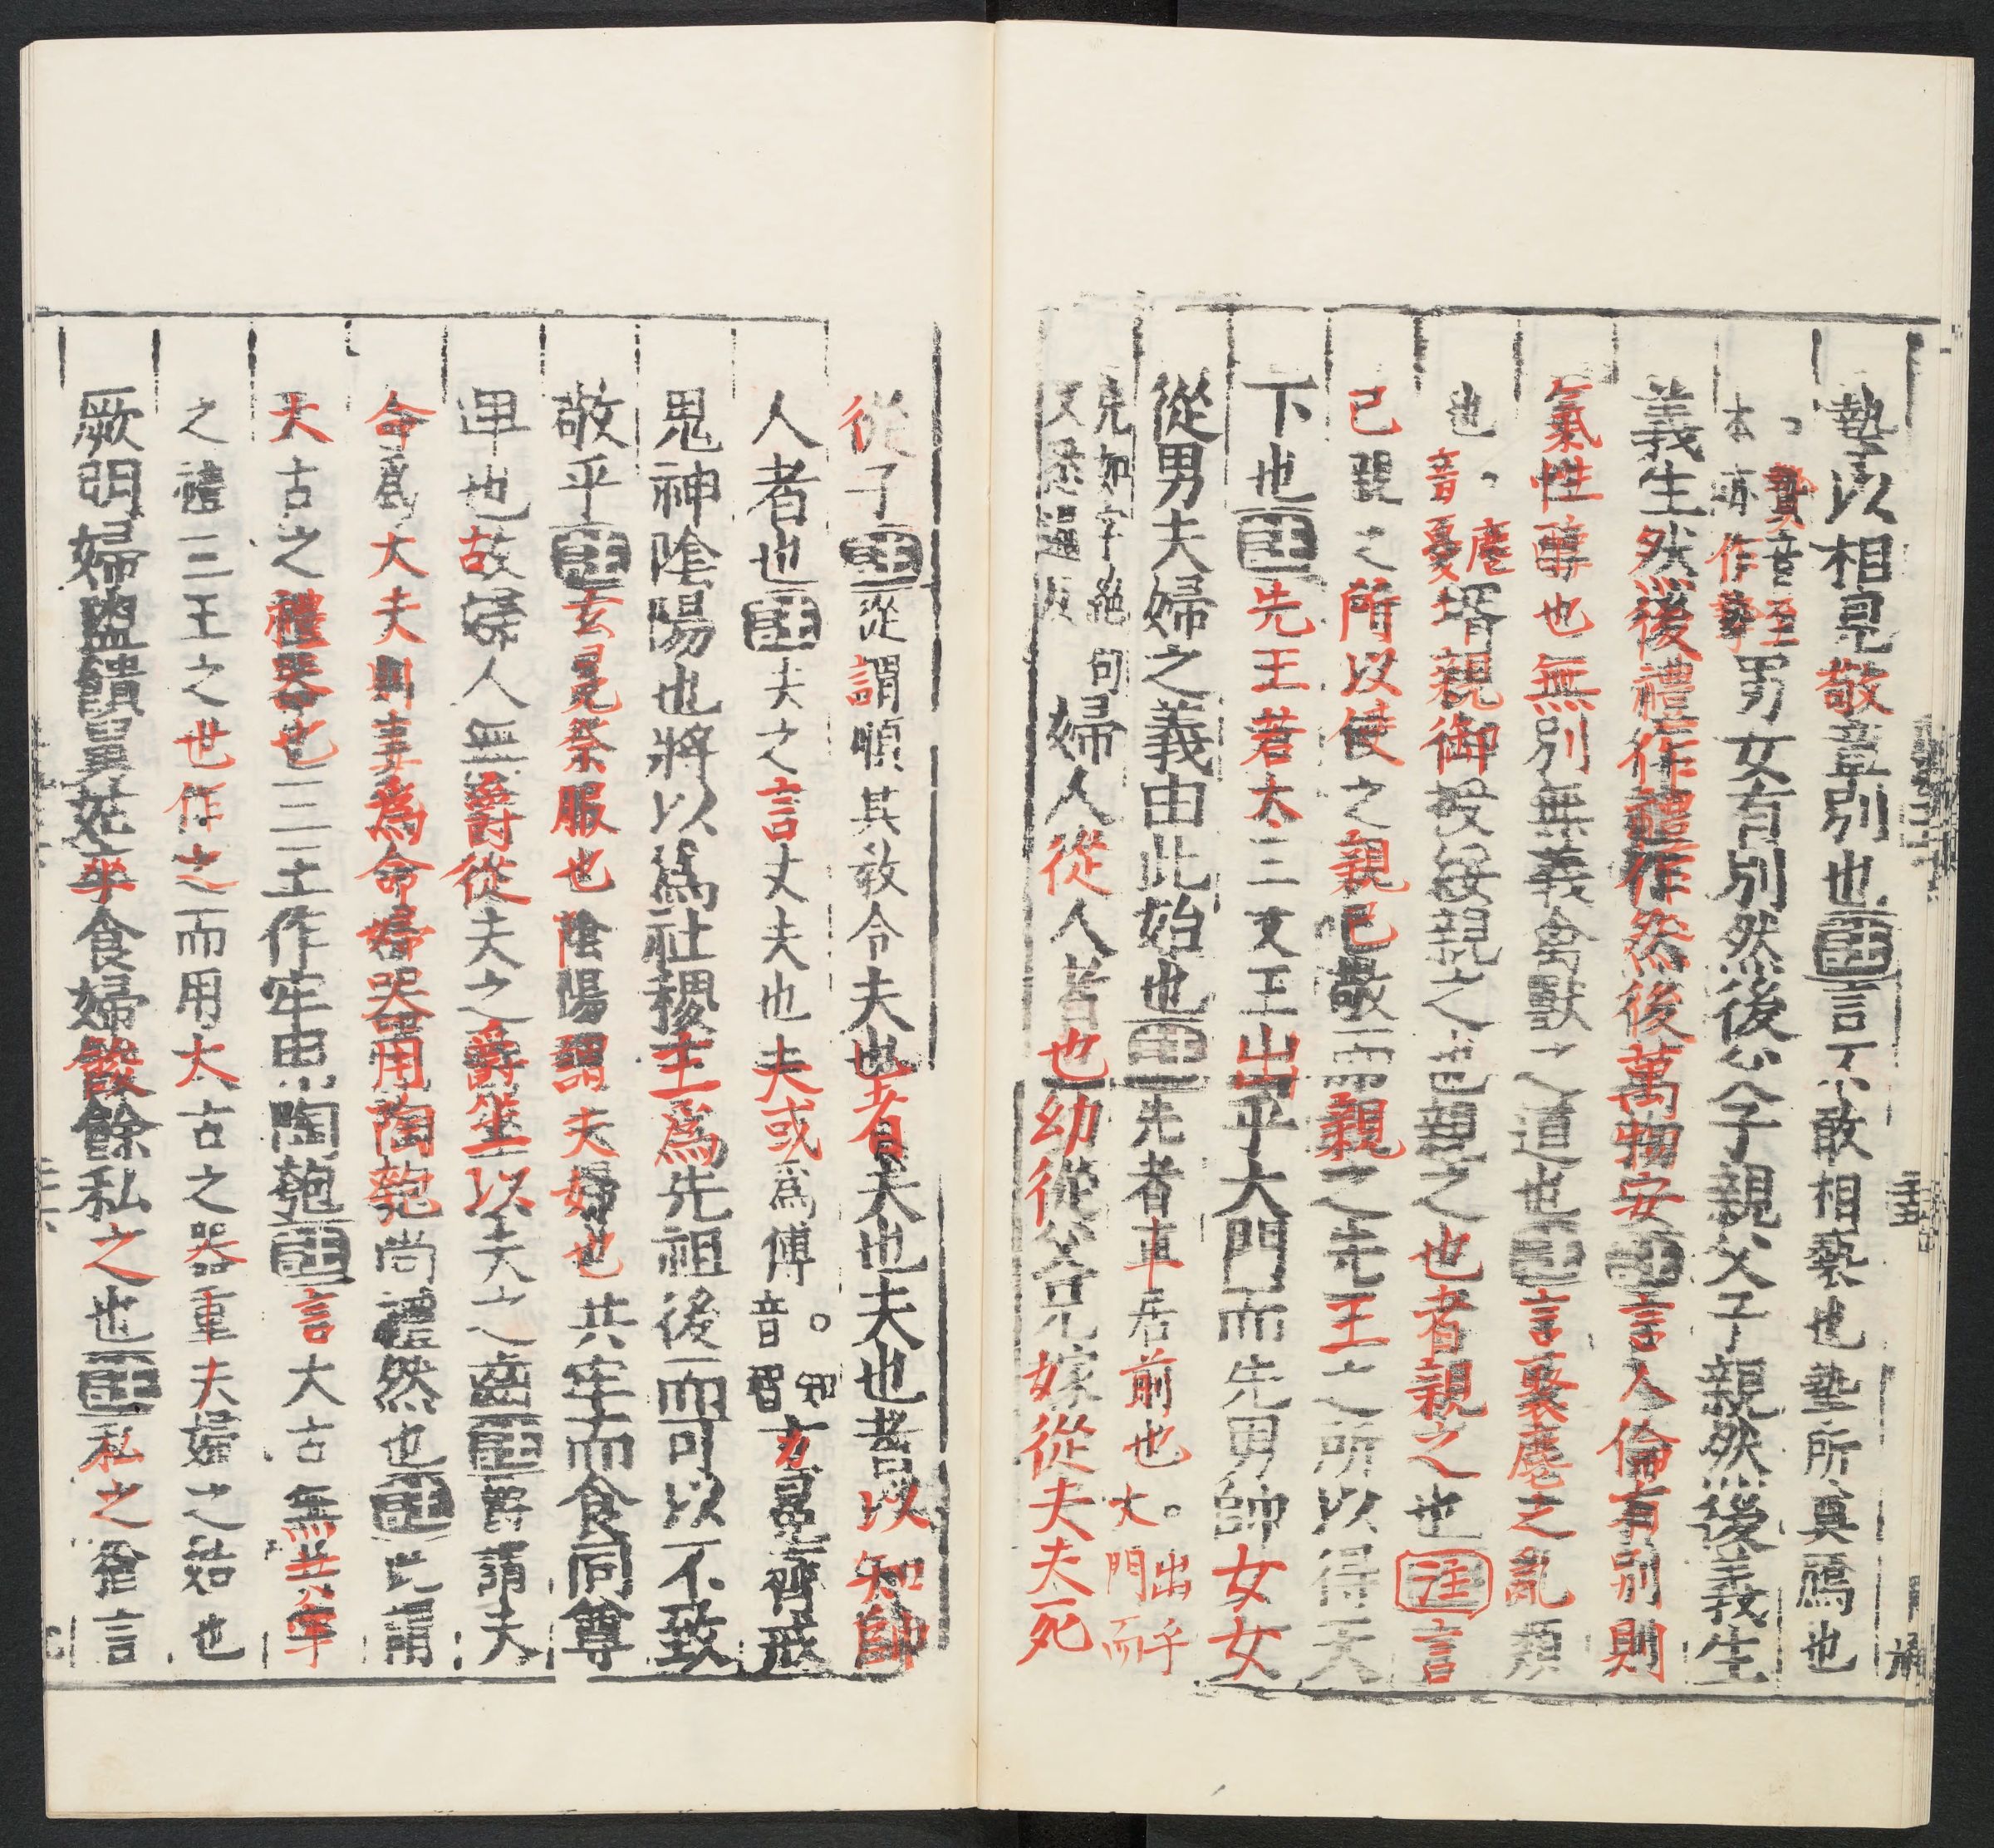 摯以相見敬章別也注言不敢相褻也摯所奠鴈也
贄音至本亦作摯男女有別然後父子親父子親然後義生
義生然後禮作禮作然後萬物安注言人倫有別則
氣性醇也無別無義禽獸之道也注言聚麀之亂類
也麀音憂壻親御授綏親之也親之也者親之也注言
己親之所以使之親己敬而親之先王之所以得天
下也注先王若大王文王出乎大門而先男帥女女
從男夫婦之義由此始也注先者車居前也。出乎大門而
先如字絶句又悉遍反婦人從人者也幼從父兄嫁從夫夫死
從子注從謂順其教令夫也者夫也夫也者以知帥
人者也注夫之言丈夫也夫或爲傅。知音智玄冕齊戒
鬼神陰陽也將以爲社稷主爲先祖後而可以不致
敬乎注玄冕祭服也陰陽謂夫婦也共牢而食同尊
卑也故婦人無爵從夫之爵坐以夫之齒注爵謂夫
命爲大夫則妻爲命婦器用陶匏尚禮然也注此謂
大古之禮器也三王作牢用陶匏注言大古無共牢
之禮三王之世作之而用大古之器重夫婦之始也
厥明婦盥饋舅姑卒食婦餕餘私之也注私之猶言